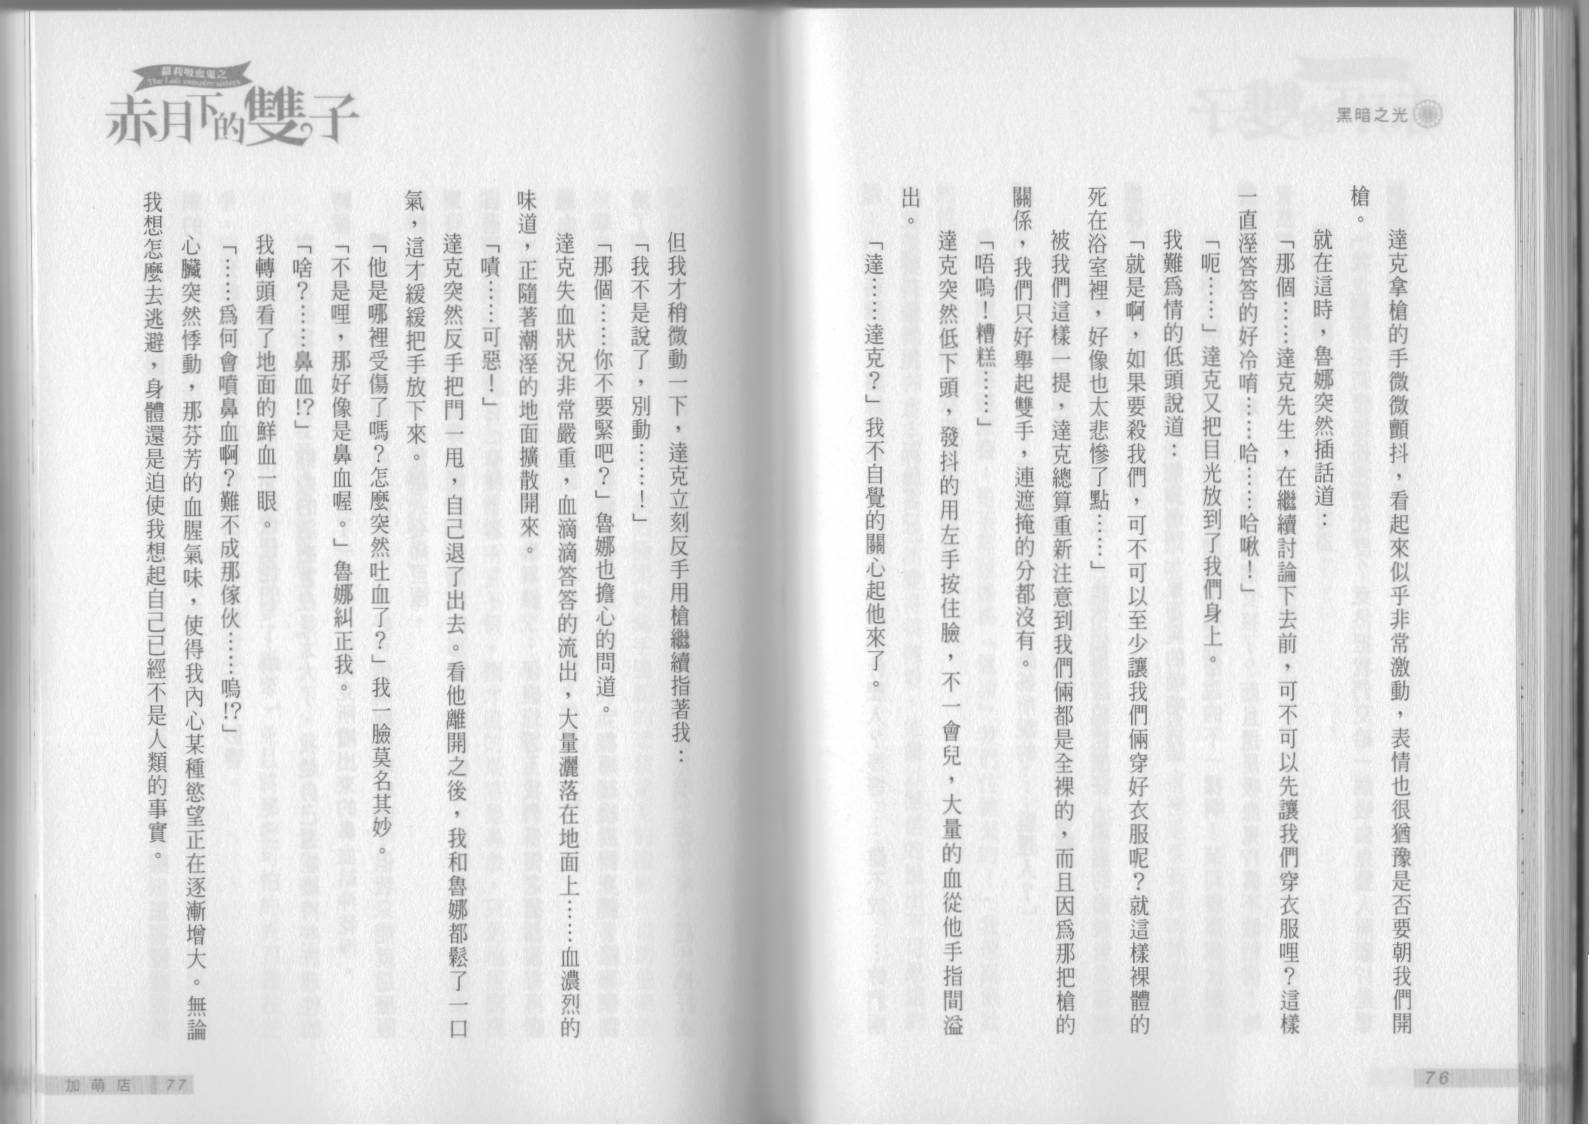 黑暗之光
達克拿槍的手微微顫抖，看起來似乎非常激動，表情也很猶豫是否要朝我們開
槍。
就在這時，魯娜突然插話道：
「那個……達克先生，在繼續討論下去前，可不可以先讓我們穿衣服哩？這樣
一直溼答答的好冷唷……哈……哈啾！」
「呃……」達克又把目光放到了我們身上。
我難為情的低頭說道：
「就是啊，如果要殺我們，可不可以至少讓我們倆穿好衣服呢？就這樣裸體的
死在浴室裡，好像也太悲慘了點……」
被我們這樣一提，達克總算重新注意到我們倆都是全裸的，而且因為那把槍的
關係，我們只好舉起雙手，連遮掩的分都沒有。
「唔嗚！糟糕……」
達克突然低下頭，發抖的用左手按住臉，不一會兒，大量的血從他手指間溢
出。
「達……達克？」我不自覺的關心起他來了。
76
蘿莉吸血鬼之
赤月下的雙子
但我才稍微動一下，達克立刻反手用槍繼續指著我：
「我不是說了，別動……！」
「那個……你不要緊吧？」魯娜也擔心的問道。
達克失血狀況非常嚴重，血滴滴答答的流出，大量灑落在地面上……血濃烈的
味道，正隨著潮溼的地面擴散開來。
「嘖……可惡！」
達克突然反手把門一甩，自己退了出去。看他離開之後，我和魯娜都鬆了一口
氣，這才緩緩把手放下來。
「他是哪裡受傷了嗎？怎麼突然吐血了？」我一臉莫名其妙。
「不是哩，那好像是鼻血喔。」魯娜糾正我。
「啥？……鼻血!?」
我轉頭看了地面的鮮血一眼。
「……為何會噴鼻血啊？難不成那傢伙……嗚!?」
心臟突然悸動，那芬芳的血腥氣味，使得我內心某種慾望正在逐漸增大。無論
我想怎麼去逃避，身體還是迫使我想起自己已經不是人類的事實。
加萌店 77